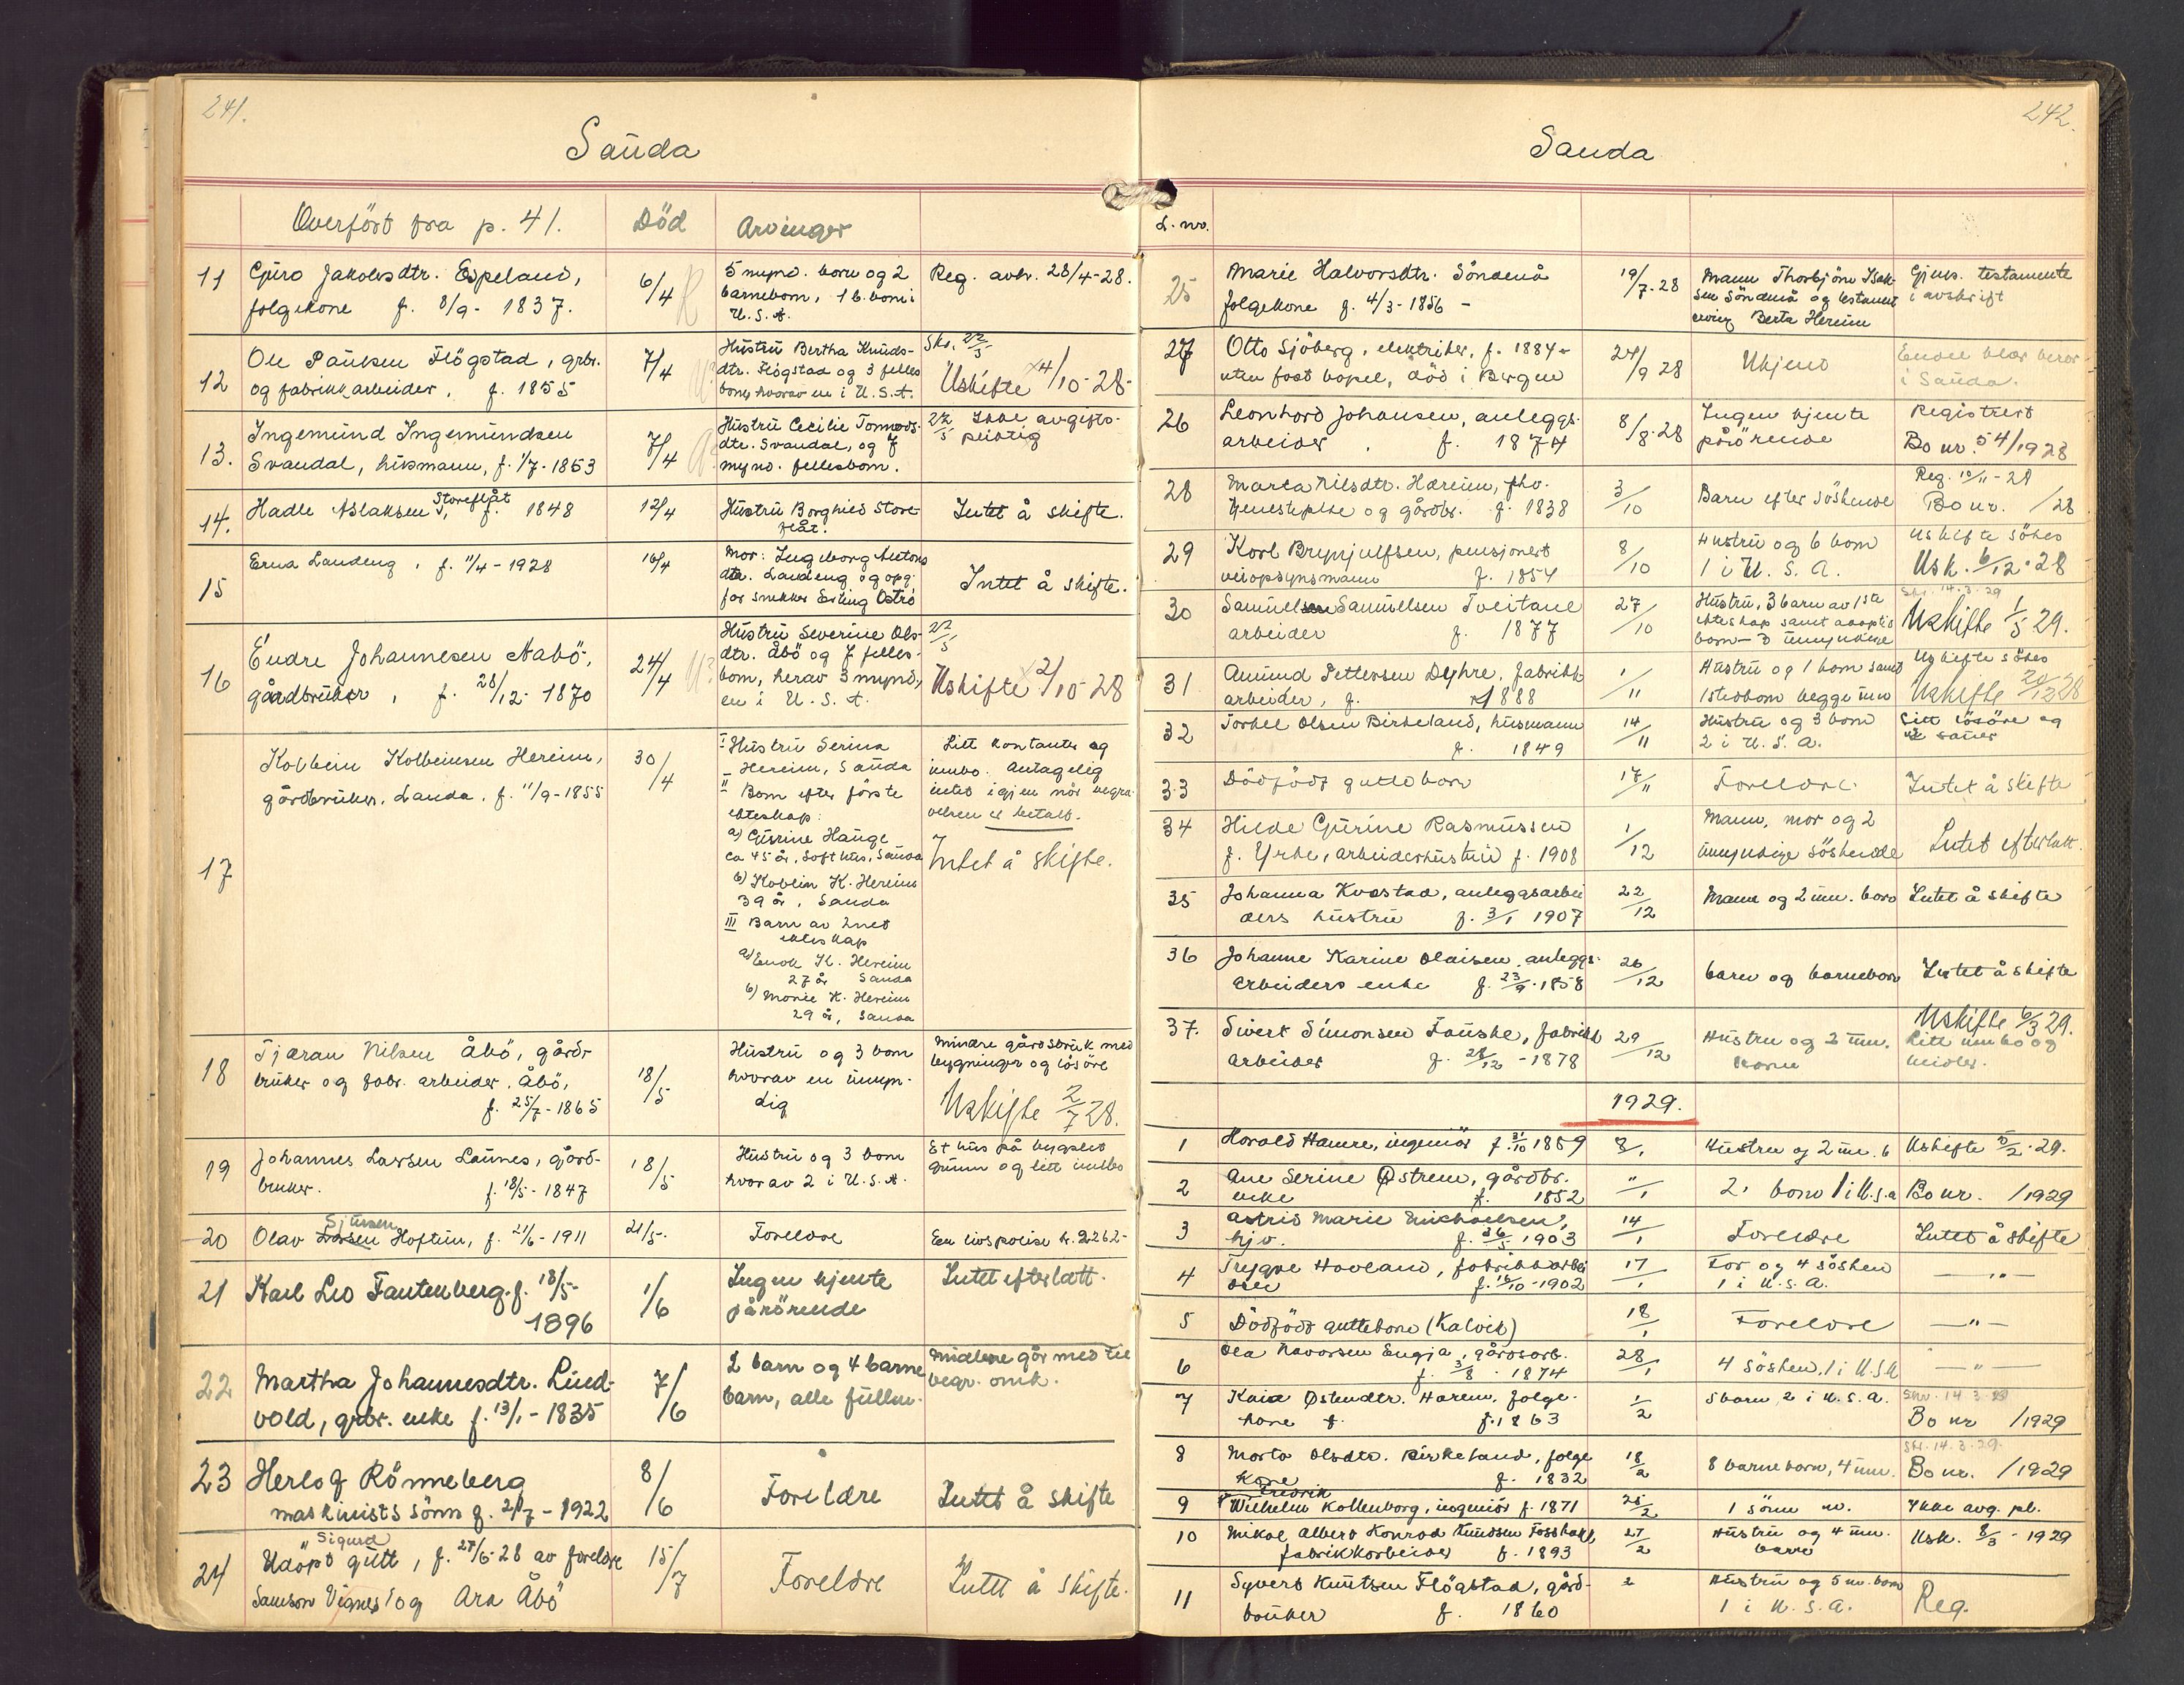 241.
Sauda
Overfört fra p. 41.
Död
Arvinger
11
Guro Jakobsdtr. Espeland,
folgekone f. 8/9 - 1837.
6/4
5 mynd. born og 2
barneborn, 1 b.born i
U.S.A.
Reg. avh. 28/4-28.
12
Ole Paulsen Flögstad, grbr.
og fabrikkarbeider, f. 1855
7/4
Hustru Bertha Knuds-
dtr. Flögstad og 3 felles
born, hvorav en i U.S.A.
Skr. 22/5
Uskifte 4/10-28-
13.
Ingemund Ingemundsen
Svandal, husmann, f. 1/7-1853
7/4
Hustru Cecilie Tormods-
dtr. Svandal, og 7
mynd. fellesborn.
22/5 Ikke avgifts-
pliktig
14.
Hadle Aslaksen Storeflåt f. 1848
12/4
Hustru Borghild Store-
flåt.
Intet å skifte.
15
Erna Landeng, f. 11/4-1928
16/4
Mor: Ingeborg Antons
dtr. Landeng og opg.
far snekker Erling Oströ
Intet å skifte.
16
Endre Johannesen Aabö,
gårdbruker, f. 28/12-1870
24/4
Hustru Severine Ols-
dtr. Åbö og 7 felles-
born, herav 3 mynd,
en i U.S.A.
22/5
Uskifte 2/10-28
17
Kolbein Kolbeinsen Hereim,
gårdbruker, Sauda. f. 11/9-1855
30/4
I Hustru Serina
Hereim, Sauda
II Born efter förste
ekteskap:
a) Gurine Hauge
ca 45 år, Softhus, Sauda
b) Kolbein K. Hereim
39 år, Sauda
III Barn av 2net
ekteskap
a) Enok K. Hereim
27 år Sauda
b) Marie K. Hereim
29 år, Sauda
Litt kontanter og
innbo. Antagelig
intet igjen når begra-
velsen er betalt.
Intet å skifte.
18
Tjæran Nilsen Åbö, gård-
bruker og fabr. arbeider, Åbö,
f. 25/7-1865
18/5
Hustru og 3 born
hvorav en umyn-
dig
Mindre gårdsbruk med
bygninger og lösöre
Uskifte 2/7 28.
19
Johannes Larsen Launes, gård-
bruker. f. 18/5-1847
18/5
Hustru og 3 born
hvorav 2 i U.S.A.
Et hus på bygslet
grunn og litt innbo
20
Olav Larsen Sjursen Hoftun, f. 21/6-1911
21/5.
Foreldre
En livspolise kr. 2262-
21
Karl Leo Fautenberg f. 18/5-
1896
1/6
Ingen kjente
pårörende
Intet efterlatt.
22
Martha Johannesdtr. Lind-
vold, grbr. enke f. 13/1-1835
7/6
2 barn og 4 barne
barn, alle fullm.
Midlene går med til
begr. omk.
23
Herlof Rönneberg
maskinists sönn f. 21/7-1922
8/6
Foreldre
Intet å skifte
24
Sigurd
Udöpt gutt, f. 27/6-28 av foreldre
Samson Vignes og Ara Åbö
15/7
Foreldre
Intet å skifte.
242.
Sauda
L. nr.
25
Marie Halvorsdtr. Söndenå
folgekone f. 4/3-1856 -
19/7-28
Mann Thorbjörn Isak-
sen Söndenå og testament
arving Berta Hereim
Gjens. testamente
i avskrift
27
Otto Sjöberg, elektriker, f. 1884-
uten fast bopel, död i Bergen
24/9 28
Ukjend
i Sauda.
26
Leonhard Johansen, anleggs-
arbeider. f. 1874
8/8-28
Ingen kjente
pårörende
Registrert
Bo nr. 54/1928
28
Marta Nilsdtr. Hereim, fhv.
tjenestepike og gårdbr. f. 1838
3/10
Barn efter söskende
Reg. 10/11-28
Bo nr. /28
29
Karl Brynjulfsen, pensjonert
veiopsynsmann f. 1854
8/10
Hustru og 6 born
1 i U.S.A.
Uskifte sökes
Usk. 6/12-28
30
Samuel Samuelsen Tveitane
arbeider f. 1877
27/10
Hustru, 3 barn av 1ste
ekteskap samt adoptiv
born - 3 umyndige
Skr. 14.3.29
Uskifte 1/5 29.
31
Amund Pettersen Dyhre, fabrikk
arbeider, f. 1888
1/11
Hustru og 1 born samt
1 stedborn begge um
Uskifte sökes
Uskifte 20/12 28
32
Torkel Olsen Birkeland, husmann
f. 1849
14/11
Hustru og 3 born
2 i U.S.A.
Litt lösöre og
sauer
33
Dödfödt guttebarn
17/11
Foreldre.
Intet å skifte
34
Hilde Gurine Rasmussen
f. Yrke, arbeiderhustru f. 1908
1/12
Mann, mor og 2
umyndige söskende
Intet efterlatt.
35
Johanna Kvastad, anleggsarbei
ders hustru f. 3/1 1907
22/12
Mann og 2 um. born
Intet å skifte
36
Johanne Karine Olaisen, anleggs-
arbeiders enke f. 23/9-1858
26/12
barn og barneborn
Intet å skifte
37.
Sivert Simonsen Fauske, fabrikk
arbeider f. 28/12-1878
29/12
Hustru og 2 um.
born
Uskifte 6/3 29.
Litt innbo og
midler.
1929.
1
Harald Hamre, ingeniör f. 31/10 1859
3/1
Hustru og 2 um. b
Uskifte 5/2-29.
2
Ane Serine Østrem, gårdbr.
enke f. 1852
"/1
2 born 1 i U.S.A
Bo nr. /1929
3
Astrid Marie Michaelsen,
hjv. f. 26/5 1903
14/1
Foreldre
Intet å skifte
4
Trygve Hovland, fabrikkarbei
der f. 16/10-1902
17/1
Far og 4 söshen
1 i U.S.A.
— " —
5
Dödfödt guttebarn (Kalvik)
18/1
Foreldre
— " —
6
Ola Havorsen Engja, gårdsarb.
f. 3/8 1874
28/1
4 söshen, 1 i U.S.A
— " —
7
Kaia Østendtr. Harem, folge-
kone f. 1863
1/2
5 barn, 2 i U.S.A.
Skr. 14.3.29
Bo nr /1929
8
Marta Olsdtr. Birkeland, folge
kone f. 1832
18/2
8 barneborn, 4 um.
Skr. 14.3.29.
Bo nr. /1929
9
Fredrik
Wilhelm Kollenborg, ingeniör f. 1871
25/2
1 sönn m.
Ikke avg. pl.
10
Mikal Albert Konrad Knudsen Fosshall,
fabrikkarbeider f. 1893
27/2
Hustru og 4 um.
barn
Usk. 8/3-1929
11
Syvert Knutsen Flögstad, gård-
bruker f. 1860
Hustru og 5 m. born
1 i U.S.A.
Reg.